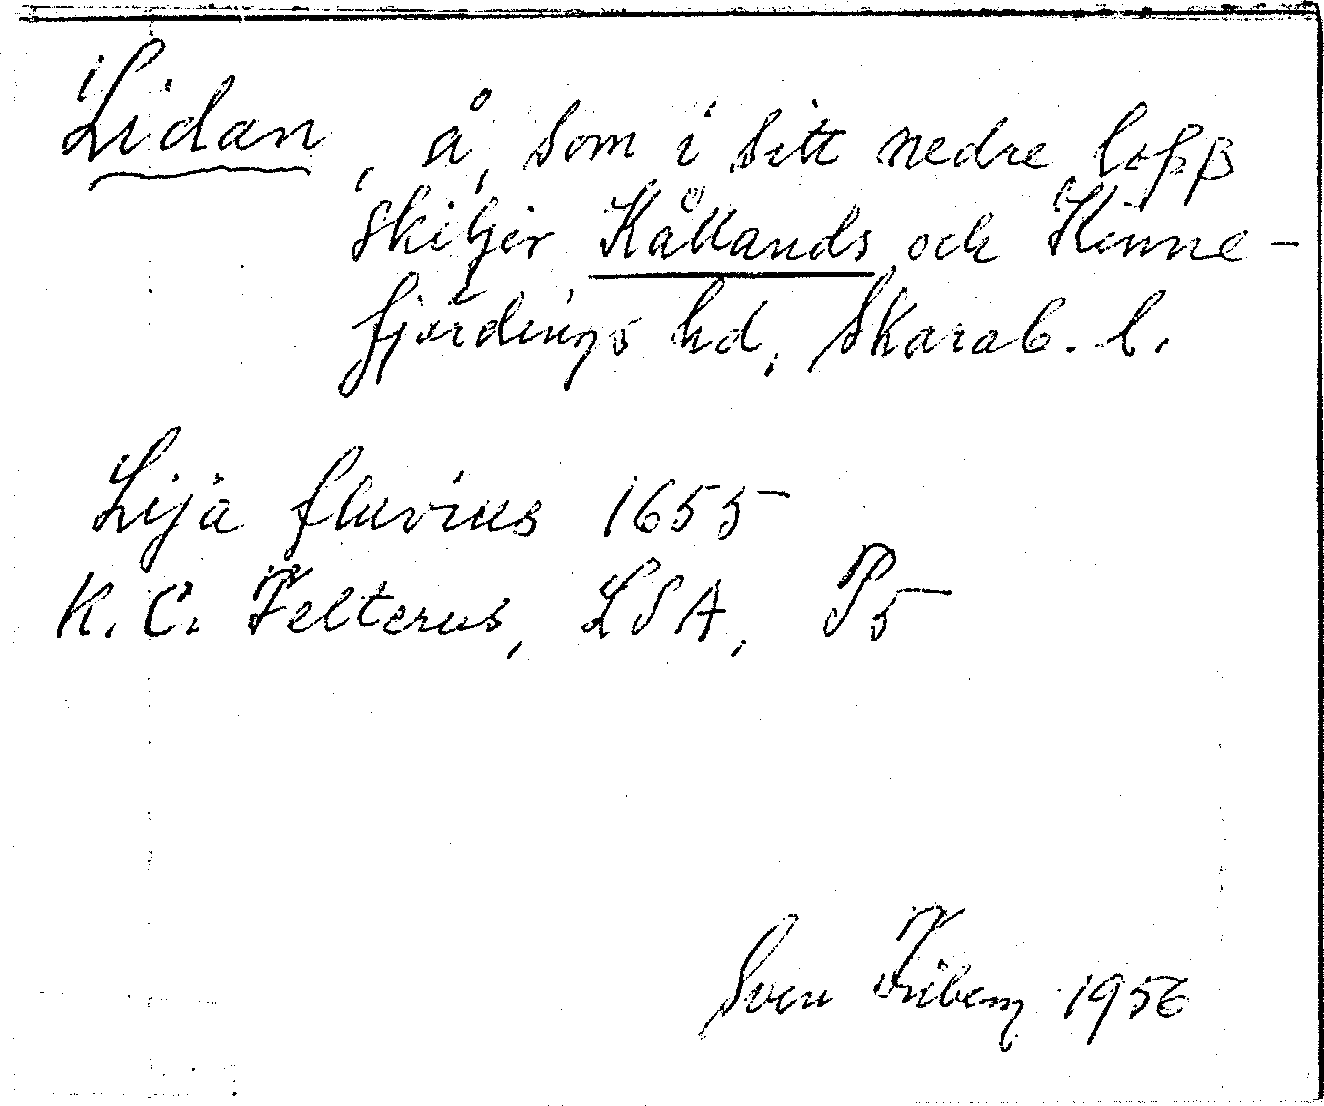 Lidan, å, som i sitt nedre lopp
skiljer Kållands och Kinne-
fjärdings hd, Skarab. l.
Lija fluvius 1655
K. C. Felterus, LSA, P5
Sven Friberg 1956